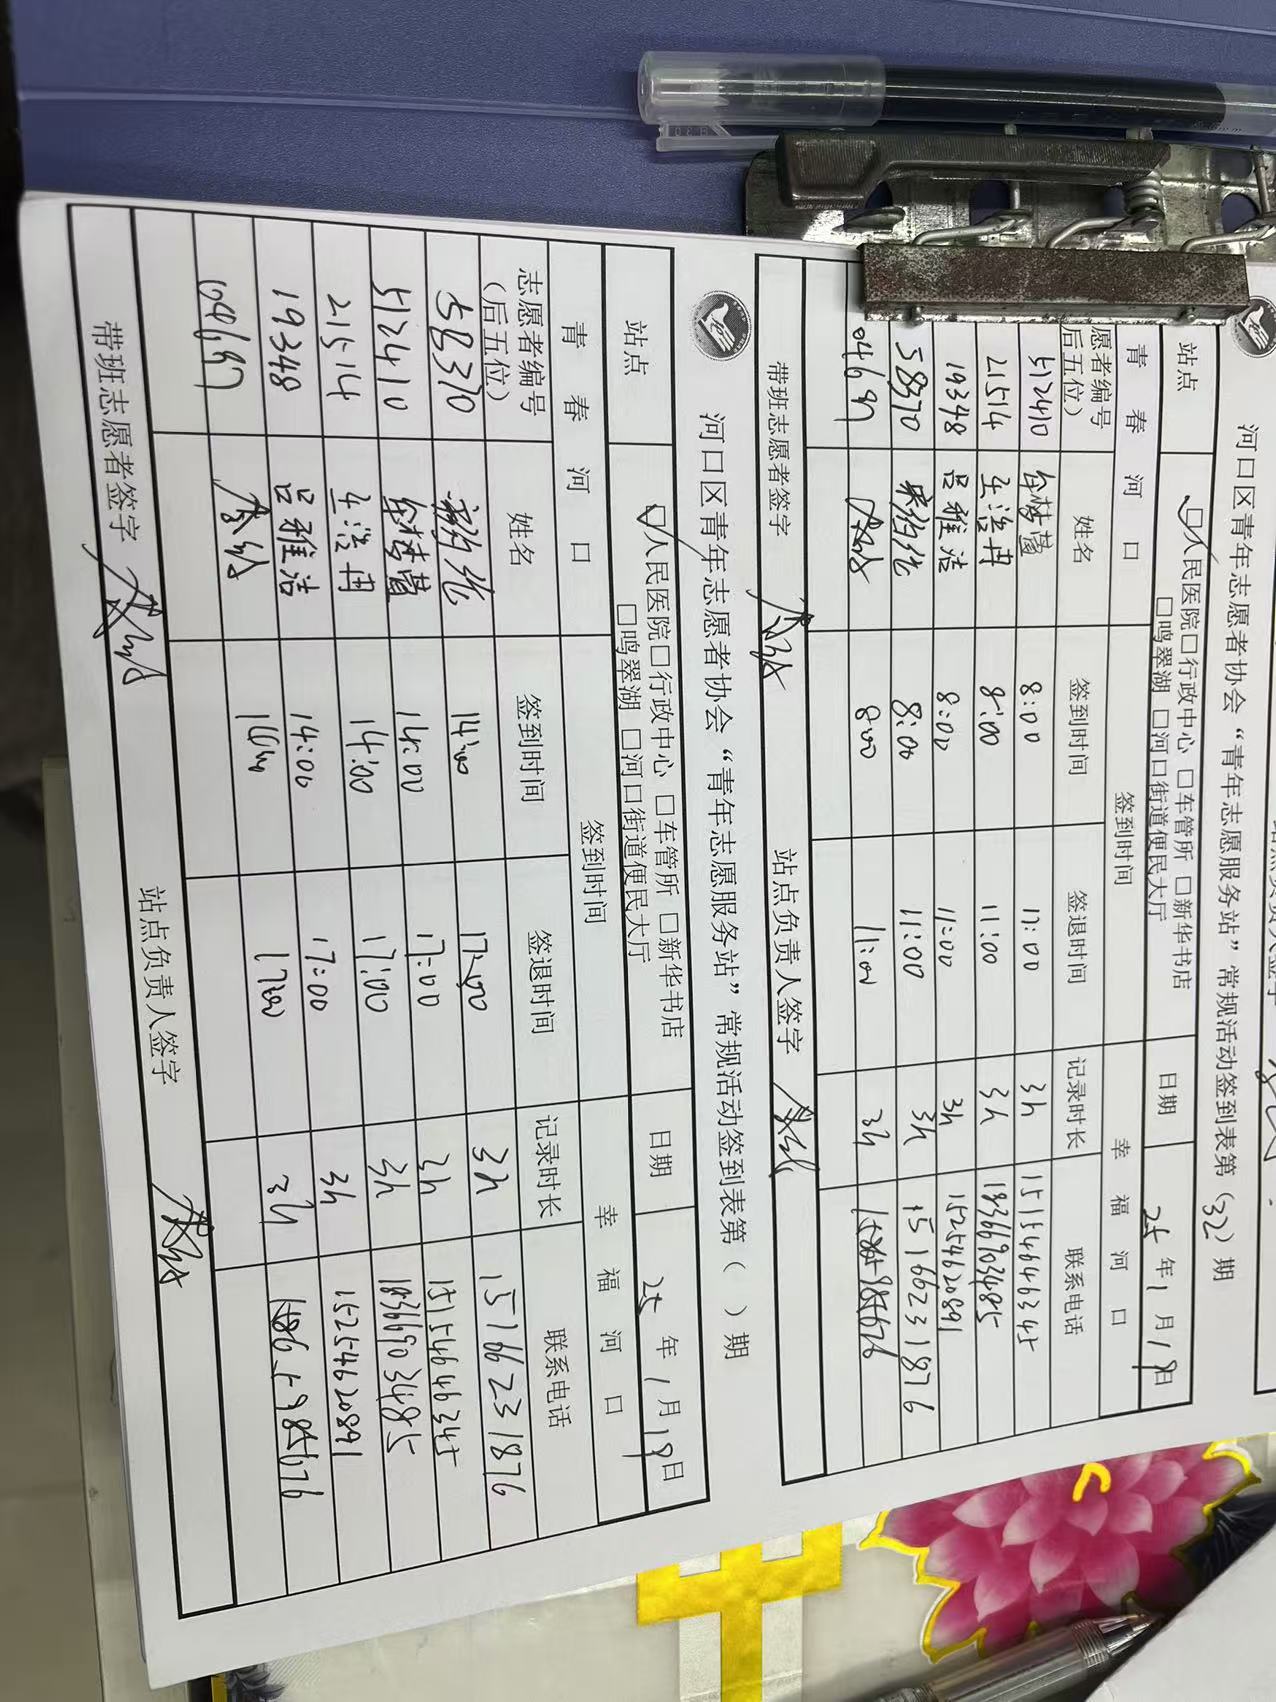 河口区青年志愿者协会“青年志愿服务站”常规活动签到表第（32）期
站点 □人民医院□行政中心 □车管所 □新华书店 日期 25年1月19日
□鸣翠湖 □河口街道便民大厅
青 春 河 口 签到时间 幸 福 河 口
愿者编号 姓名 签到时间 签退时间 记录时长 联系电话
后五位）
512410 8:00 17:00 3h 15154646345
21514 8:00 11:00 3h 18366903485
19348 吕雅洁 8:00 11:00 3h 15254620891
58370 8:00 11:00 3h 15166231876
04697 8:00 11:00 3h
带班志愿者签字 站点负责人签字
河口区青年志愿者协会“青年志愿服务站”常规活动签到表第（ ）期
站点 □人民医院□行政中心 □车管所 □新华书店 日期 25年1月19日
□鸣翠湖 □河口街道便民大厅
青 春 河 口 签到时间 幸 福 河 口
志愿者编号 姓名 签到时间 签退时间 记录时长 联系电话
（后五位）
58370 14:00 17:00 3h 15166231876
512410 14:00 17:00 3h 15154646345
21514 14:00 17:00 3h 18366903485
19348 吕雅洁 14:00 17:00 3h 15254620891
04697 1400 1700 3h
带班志愿者签字 站点负责人签字